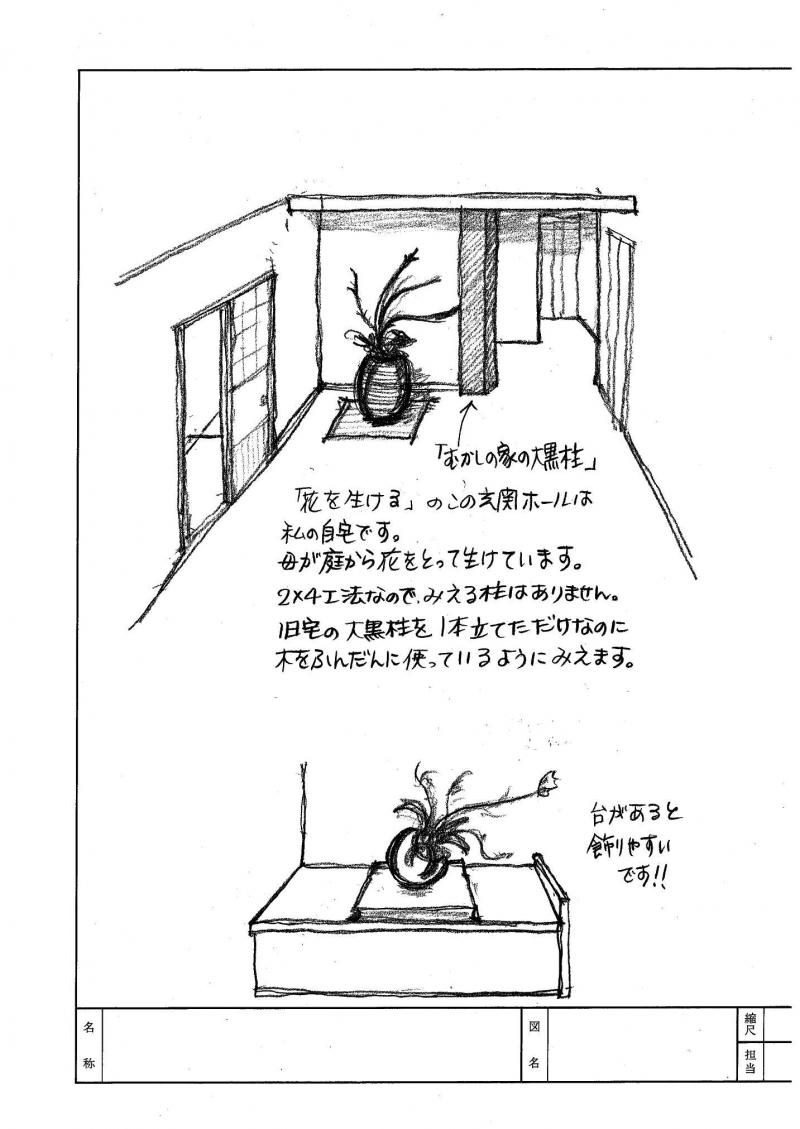 「むかしの家の大黒柱」
「花を生ける」のこの玄関ホールは
私の自宅です。
母が庭から花をとって生けています。
2×4工法なので、みえる柱はありません。
旧宅の大黒柱を1本立てただけなのに
木をふんだんに使っているようにみえます。
台があると
飾りやすい
です!!
名称
図名
縮尺
担当